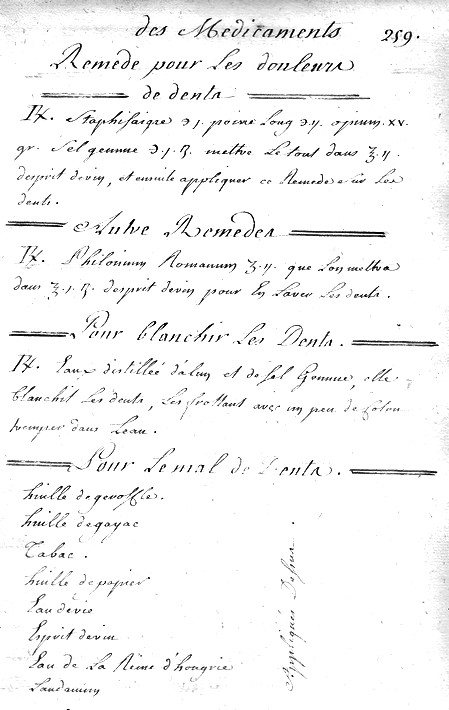 des Medicaments 259.
Remede pour Les douleurs
de dents
℞. Staphisaigre ℈.j. poivre Long ℈.ij. opium. xv.
gr. Sel gemme ℈.j.ß. mettre Le tout dans ʒ.ij.
desprit de vin, et ensuite appliquer ce Remede sur Les
dents.
Autre Remedes
℞. Philonium Romanum ʒ.ij. que Lon mettra
dans ʒ.j.ß. desprit de vin pour En Laver Les dents.
Pour blanchir Les Dents.
℞. Eaux distillée d'alun et de sel Gemme, elle
blanchit Les dents, Les frottant avec un peu de Coton
tremper dans Leau.
Pour Le mal de Dents.
huille de geroffle.
huille de gayac
Tabac.
huille de papier
Eau de vie
Esprit de vin
Eau de La Reine d'hongrie
Laudanum
Appliqués Dessus.